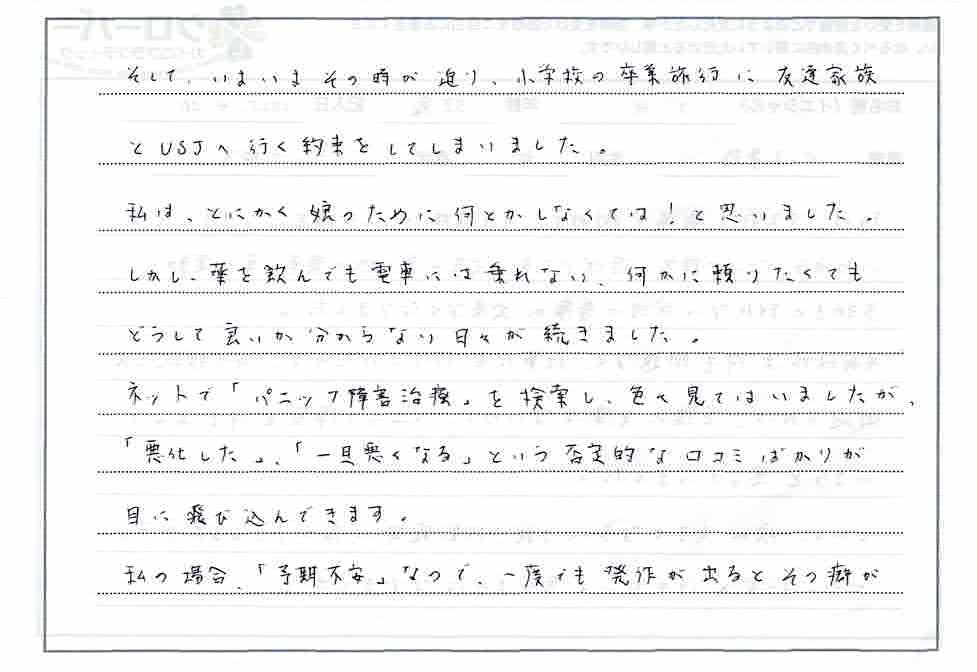 そして、いまいまその時が迫り、小学校の卒業旅行に友達家族
とUSJへ行く約束をしてしまいました。
私は、とにかく娘のために何とかしなくては！と思いました。
しかし、薬を飲んでも電車には乗れない、何かに頼りたくても
どうして良いか分からない日々が続きました。
ネットで「パニック障害治療」を検索し、色々見てはいましたが、
「悪化した」、「一旦悪くなる」という否定的な口コミばかりが
目に飛び込んできます。
私の場合、「予期不安」なので、一度でも発作が出るとその癖が